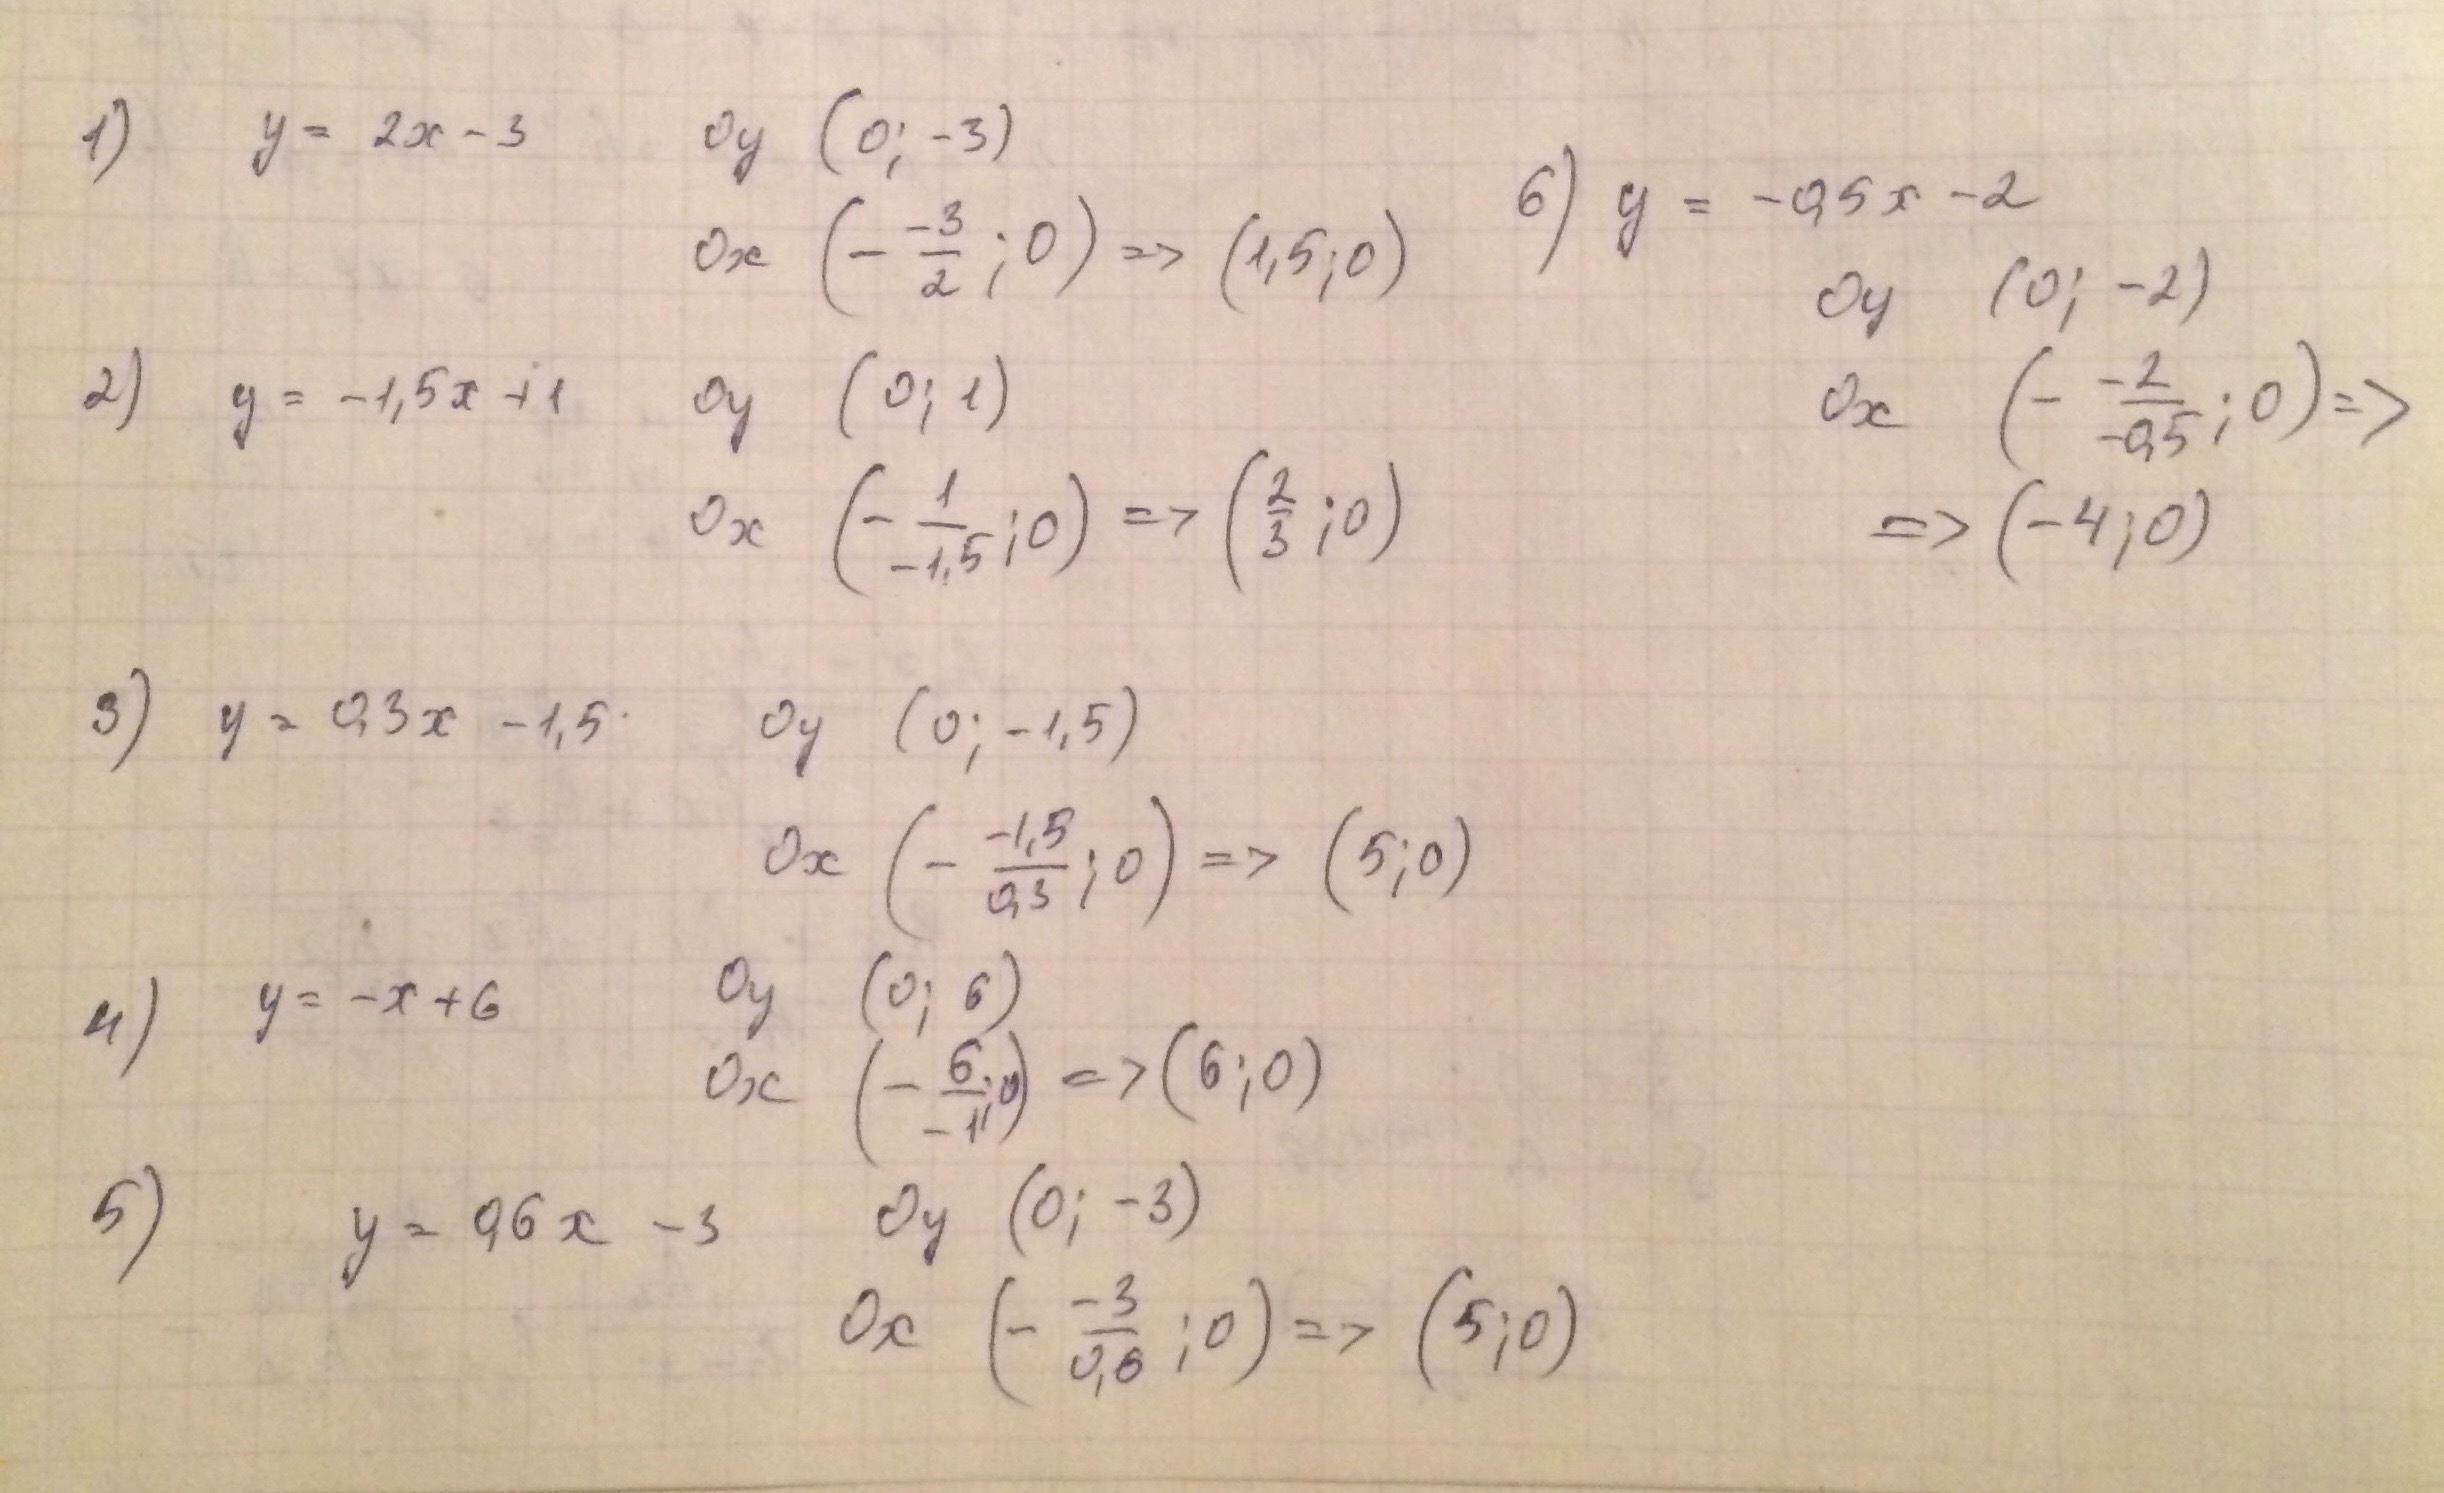 1) y = 2x - 3 Oy (0; -3)
Ox (- -3/2 ; 0) => (1,5; 0)
2) y = -1,5x + 1 Oy (0; 1)
Ox (- 1/-1,5 ; 0) => (2/3 ; 0)
3) y = 0,3x - 1,5 Oy (0; -1,5)
Ox (- -1,5/0,3 ; 0) => (5; 0)
4) y = -x + 6 Oy (0; 6)
Ox (- 6/-1 ; 0) => (6; 0)
5) y = 0,6x - 3 Oy (0; -3)
Ox (- -3/0,6 ; 0) => (5; 0)
6) y = -0,5x - 2
Oy (0; -2)
Ox (- -2/-0,5 ; 0) =>
=> (-4; 0)